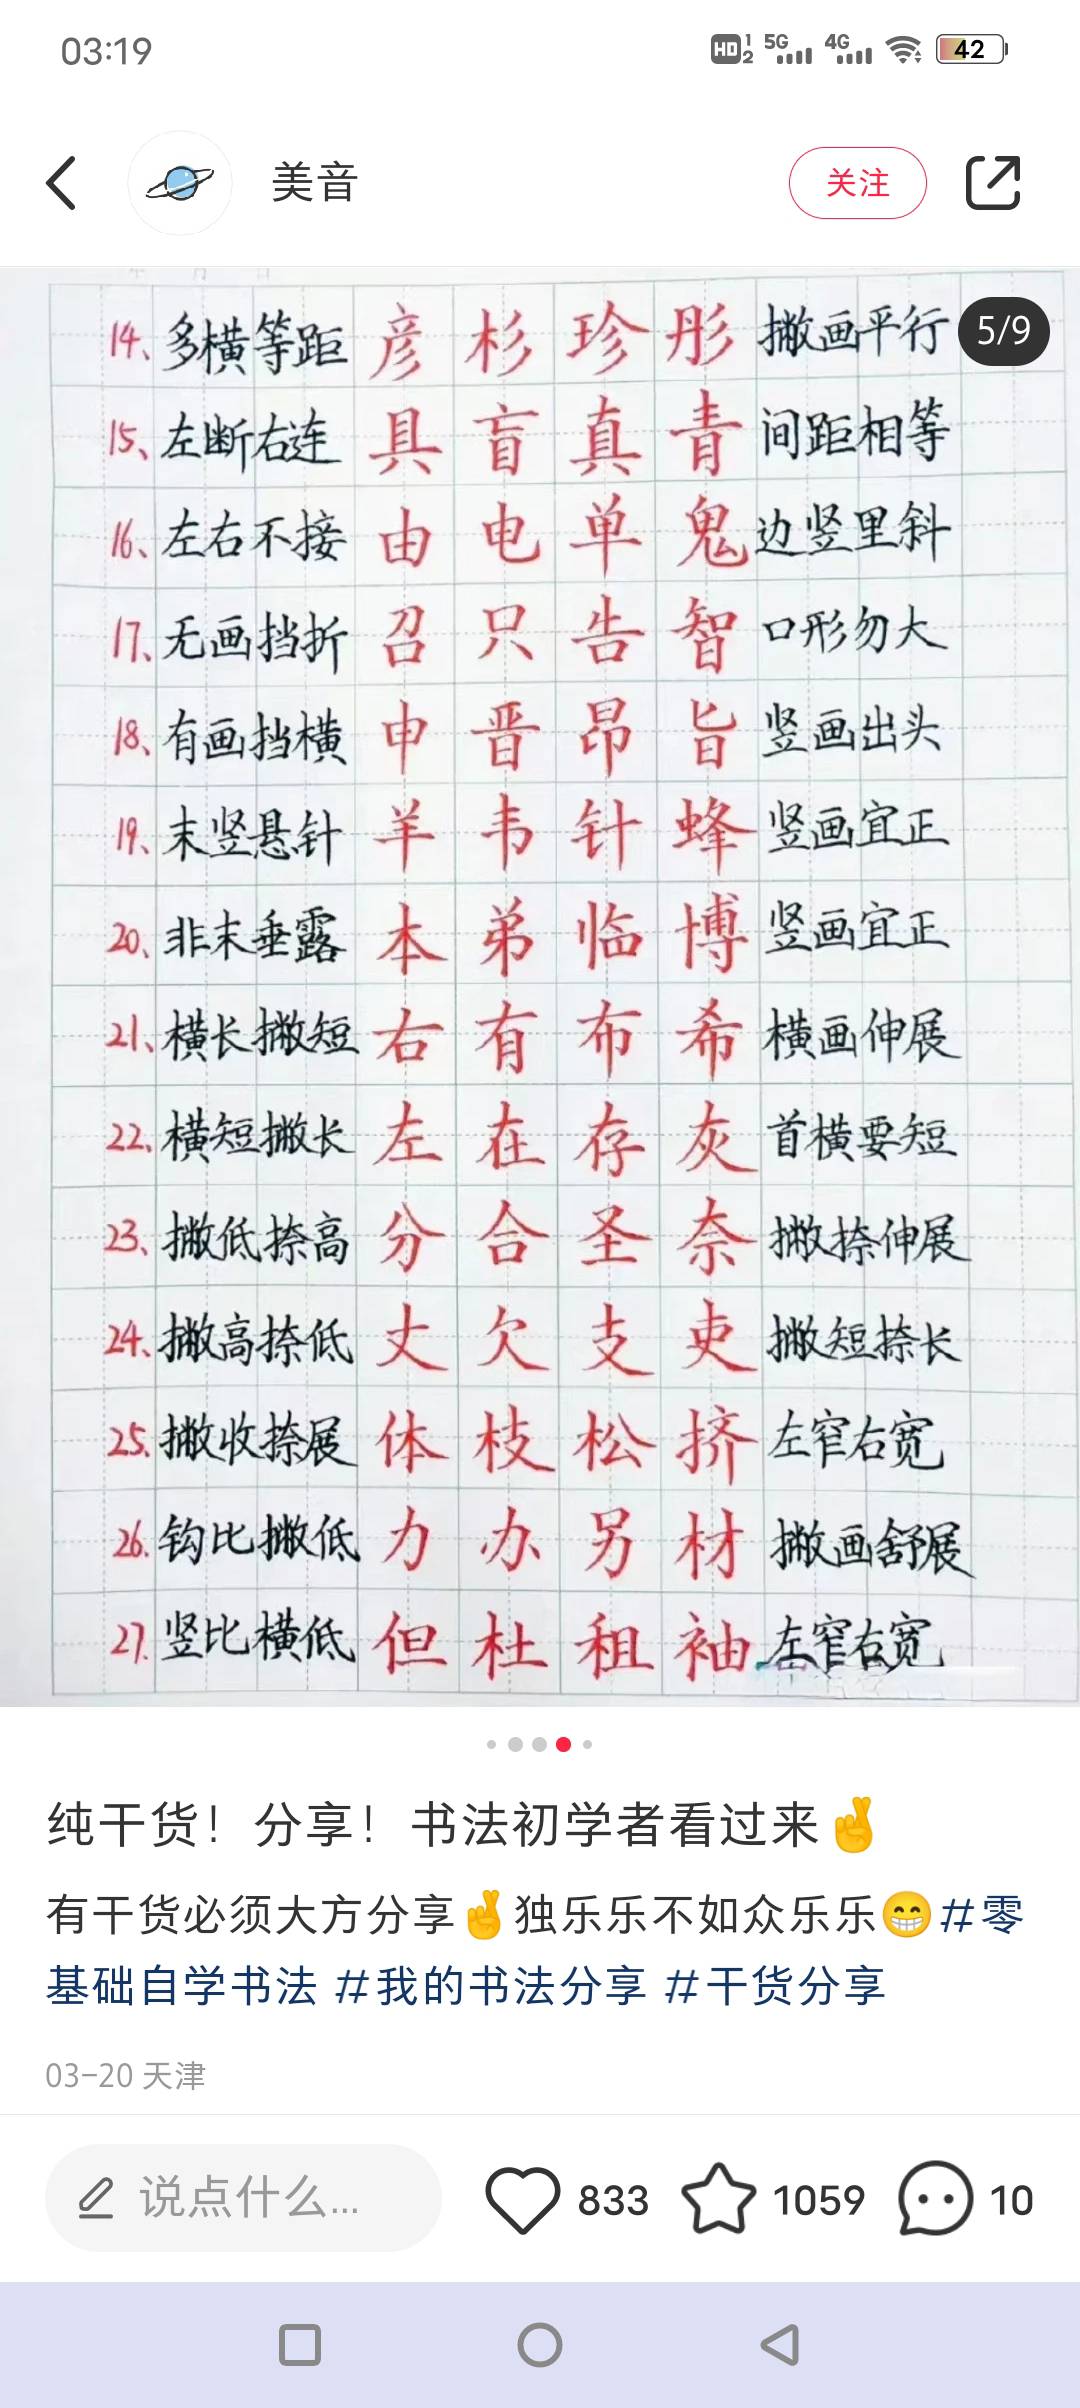 03:19
HD 1 2 5G 4G 42
美音 关注
5/9
14、多横等距 彦 杉 珍 彤 撇画平行
15、左断右连 具 盲 真 青 间距相等
16、左右不接 由 电 单 鬼 边竖里斜
17、无画挡折 召 只 告 智 口形勿大
18、有画挡横 申 晋 昂 旨 竖画出头
19、末竖悬针 羊 韦 针 蜂 竖画宜正
20、非末垂露 本 弟 临 博 竖画宜正
21、横长撇短 右 有 布 希 横画伸展
22、横短撇长 左 在 存 灰 首横要短
23、撇低捺高 分 合 圣 奈 撇捺伸展
24、撇高捺低 丈 欠 支 吏 撇短捺长
25、撇收捺展 体 枝 松 挤 左窄右宽
26、钩比撇低 力 办 另 材 撇画舒展
27、竖比横低 但 杜 租 袖 左窄右宽
纯干货！分享！书法初学者看过来🤞
有干货必须大方分享🤞独乐乐不如众乐乐😁#零
基础自学书法 #我的书法分享 #干货分享
03-20 天津
说点什么... 833 1059 10